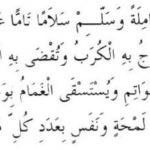 مِلَةً وَسَلِّمْ سَلَامًا تَامًّا
جُ بِهِ الْكُرَبُ وَتُقْضَى بِهِ
وَاتِمِ وَيُسْتَسْقَى الْغَمَامُ
لَمْحَةٍ وَنَفَسٍ بِعَدَدِ كُلِّ